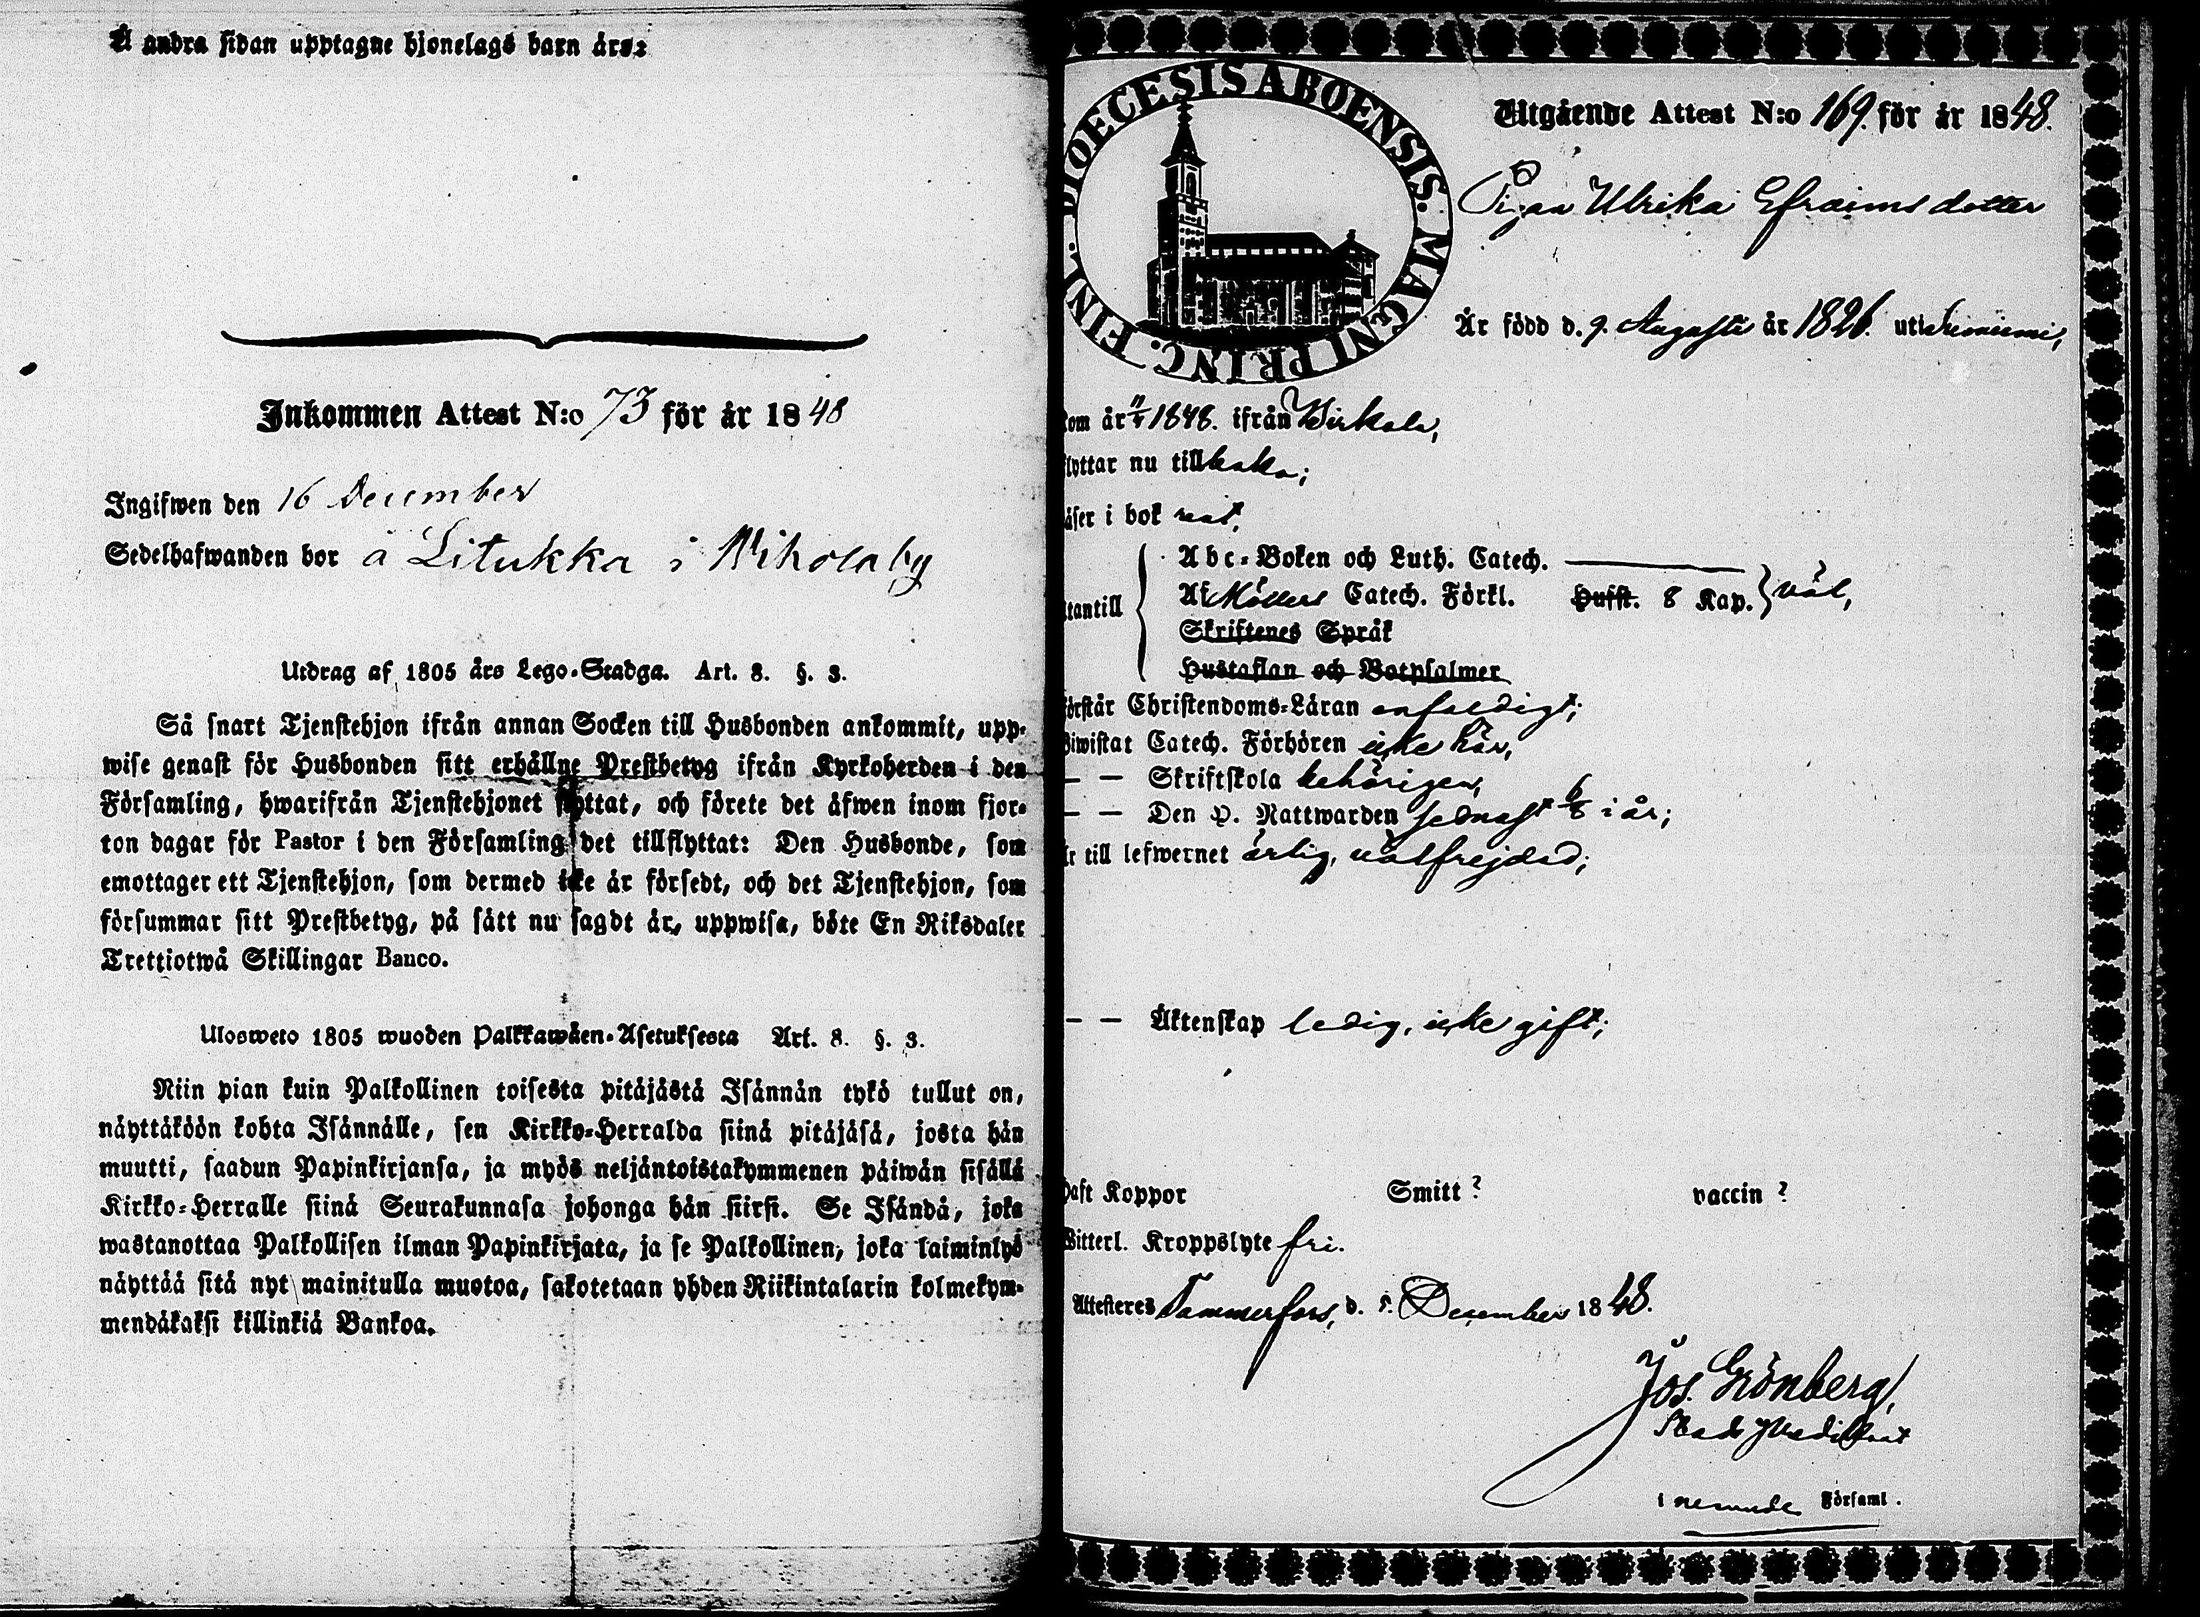 Å andra sidan upptagne hjonelags barn äro:
Inkommen Attest N:o 73 för år 1848
Ingifwen den 16 December
Sedelhafwanden bor å Litukka i Wihola by
Utdrag af 1805 års Lego-Stadga. Art. 8. §. 3.
Så snart Tjenstehjon ifrån annan Socken till Husbonden ankommit, upp-
wise genast för Husbonden sitt erhållne Prestbetyg ifrån Kyrkoherden i den
Församling, hwarifrån Tjenstehjonet flyttat, och förete det äfwen inom fjor-
ton dagar för Pastor i den Församling det tillflyttat: Den Husbonde, som
emottager ett Tjenstehjon, som dermed icke är försedt, och det Tjenstehjon, som
försummar sitt Prestbetyg, på sätt nu sagdt är, uppwisa, böte En Riksdaler
Trettiotwå Skillingar Banco.
Ulosweto 1805 wuoden Palkkawäen-Asetuksesta Art. 8. §. 3.
Niin pian kuin Palkollinen toisesta pitäjästä Isännän tykö tullut on,
näyttäköön kohta Isännälle, sen Kirkko-Herralda siinä pitäjäsä, josta hän
muutti, saadun Papinkirjansa, ja myös neljäntoistakymmenen päiwän sisällä
Kirkko-Herralle siinä Seurakunnasa johonga hän siirsi. Se Isändä, joka
wastanottaa Palkollisen ilman Papinkirjata, ja se Palkollinen, joka laiminlyö
näyttää sitä nyt mainitulla muotoa, sakotetaan yhden Riikintalarin kolmekym-
mendäkaksi killinkiä Bankoa.
DIOECESIS ABOENSIS. MAGNI PRINC. FINL.
Utgående Attest N:o 169. för år 1848.
Pigan Ulrika Efraimsdotter
Är född d. 9. Augusti år 1826. uti
kom år 11/4 1848. ifrån Birkala,
flyttar nu tillbaka;
läser i bok rent,
utantill
Abc-Boken och Luth. Catech.
Af Möllers Catech. Förkl. Hufst. 8 Kap. } väl,
Skriftenes Språk
Hustaflan och Botpsalmer
förstår Christendoms-Läran enfaldigt;
Biwistat Catech. Förhören icke här,
— — Skriftskola behörigen,
— — Den H. Nattwarden sednast 6/8 i år;
Är till lefwernet ärlig, välfrejdad;
— — Äktenskap ledig, icke gift;
haft Koppor Smitt? vaccin?
Witterl. Kroppslyte fri.
Attesteres Tammerfors, d. 5. December 1848.
Jos. Grönberg,
i nemnde Församl.